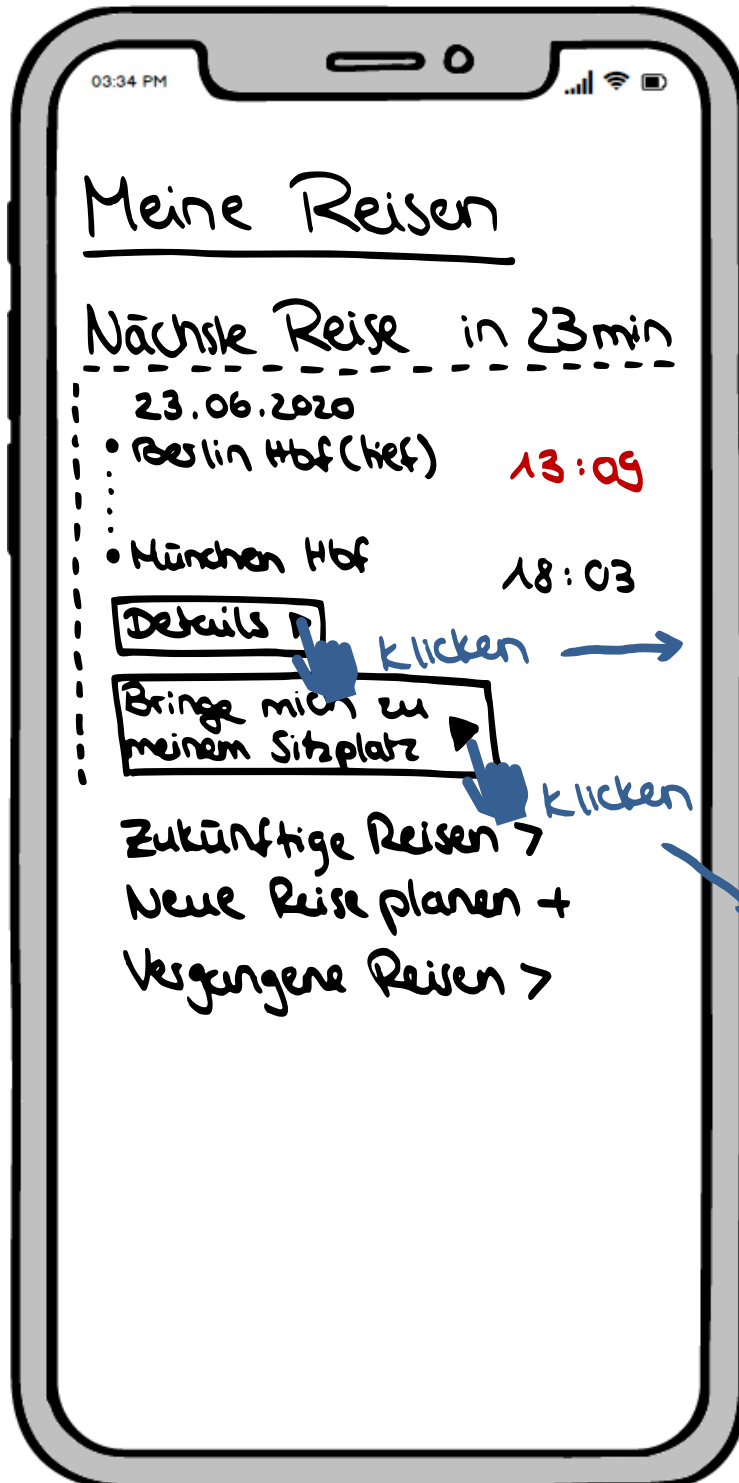 03:34 PM
Meine Reisen
Nächste Reise in 23min
23.06.2020
Berlin Hbf (tief) 13:09
München Hbf 18:03
Details
klicken
Bringe mich zu
meinem Sitzplatz
klicken
Zukünftige Reisen >
Neue Reise planen +
Vergangene Reisen >